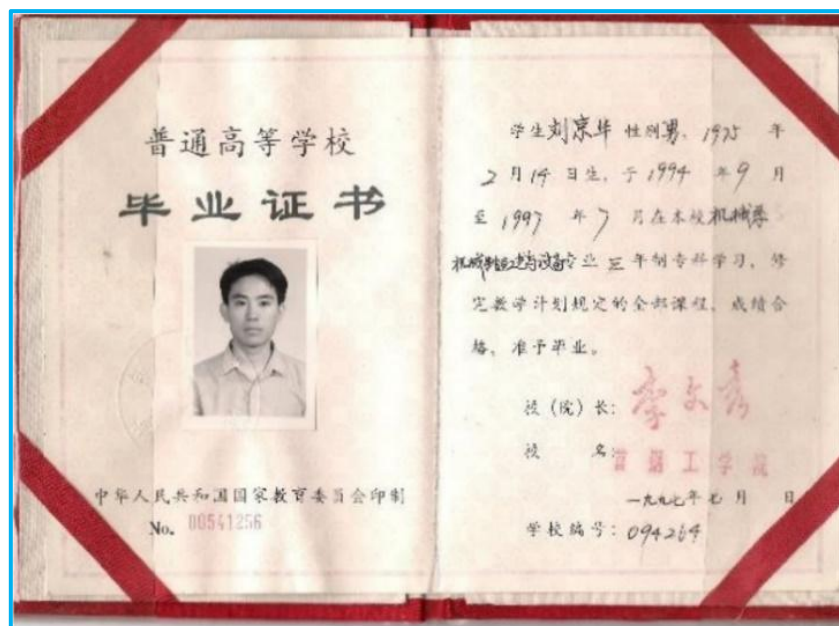 普通高等学校
毕业证书
中华人民共和国国家教育委员会印制
No. 00541256
学生刘京华 性别男、1975 年
2 月 14 日生,于 1994 年 9 月
至 1997 年 7 月在本校机械系
机械制造工艺与设备专业 三 年制专科学习,修
完教学计划规定的全部课程,成绩合
格,准予毕业。
校(院)长:李文秀
校 名:首钢工学院
一九九七年七月 日
学校编号:094264